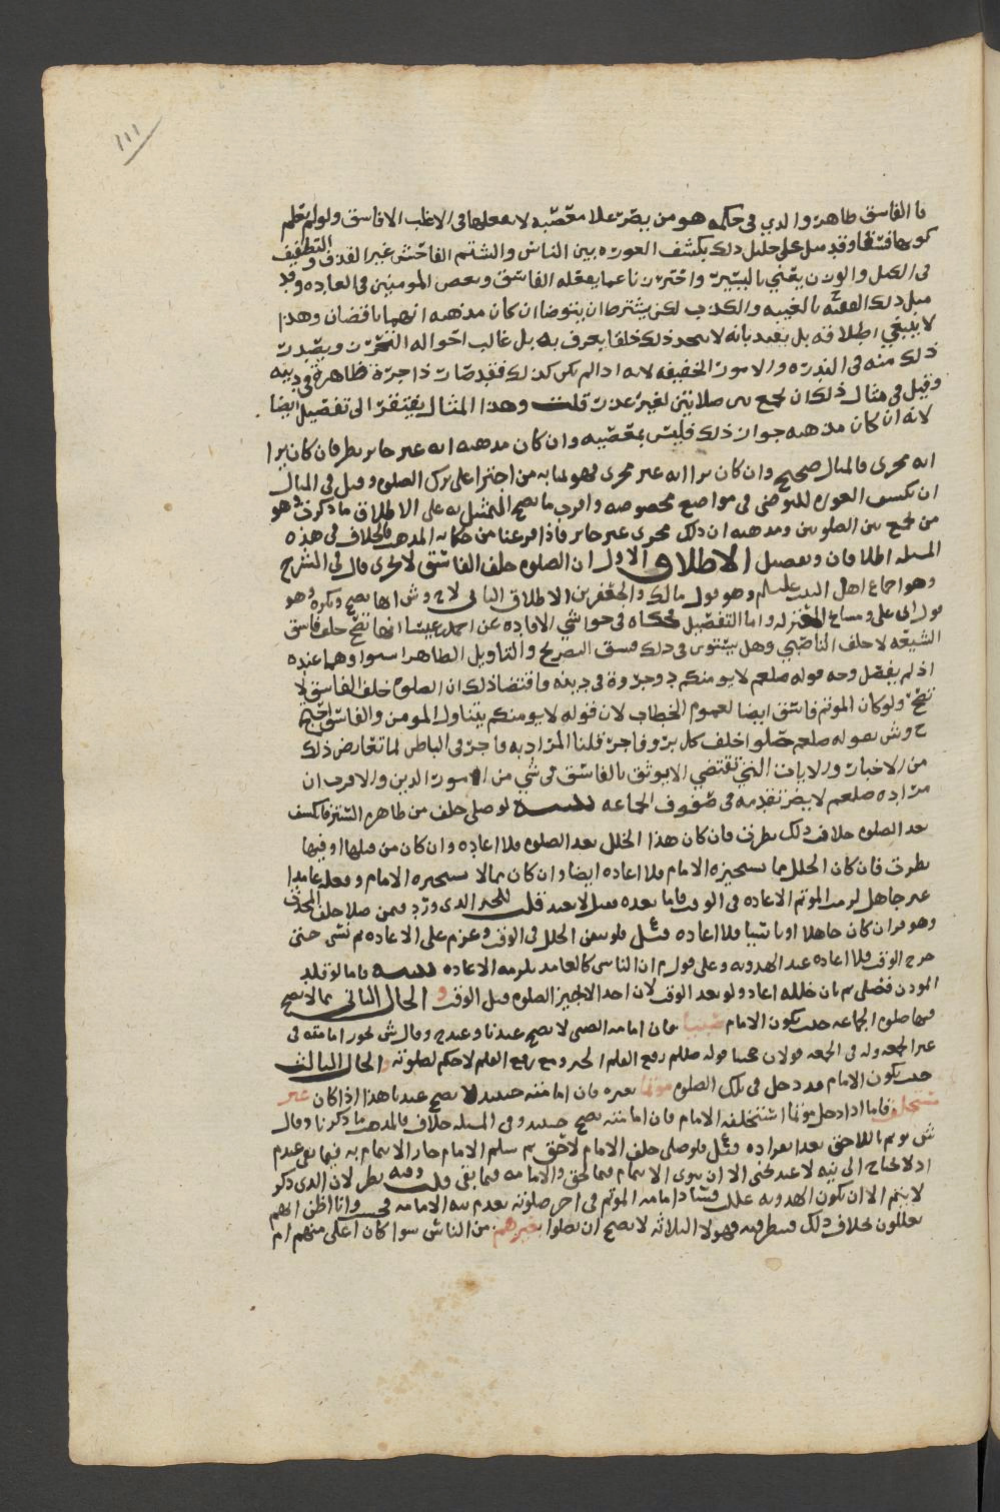 ١١١
فا الفاسق ظاهر والذي في حكمه هو من يصر علا معصيه لا يفعلها في الاغلب الا فاسق ولو لم يعلم
كونها فسقا وقد مثل علي خليل ذلك بكشف العوره بين الناس والشتم الفاحش غير القذف والتطفيف
في الكيل والوزن يعني باليسير واحترزنا عما يفعله الفاسق وبعض المومنين في العاده وقد
مثل ذلك الفقيه بالغيبه والكذب لكن بشترط ان يتوضا ان كان مذهبه انهما ناقضان وهذا
لا ينبغي اطلاقه بل يقيد بانه لا يتخذ ذلك خلقا يعرف به بل غالب احواله التحرز ويصدر
ذلك منه في الندره والامور الخفيفه لانه اذا لم يكن كذلك فقد صار ذا جرة ظاهرة في دينه
وقيل في مثال ذلك ان يجمع بين صلاتين لغير عذر قلت وهذا المثال يفتقر الى تفصيل ايضا
لانه ان كان مذهبه جواز ذلك فليس بمعصيه وان كان مذهبه انه غير جايز نظر فان كان يرا
انه مجزي فالمثال صحيح وان كان يرا انه غير مجزي فهو بمثابه من اجترا على ترك الصلوه وقيل في المثال
ان تكشف العوره للتوضي في مواضع مخصوصه واقرب ما يصح التمثيل به على الاطلاق ما ذكرت وهو
من يجمع بين الصلوتين ومذهبه ان ذلك مجزي غير جايز فاذا فرغنا من حكايه المذهب فالخلاف في هذه
المسله اطلاقان وتفصيل الاطلاق الاول ان الصلوه خلف الفاسق لا تجزي قال في الشرح
وهو اجماع اهل البيت عليلم وهو قول مالك والجعفرين الاطلاق الثاني لاح وش انها تصح وتكره وهو
قول ابي علي ومشايخ المعتزله واما التفصيل فحكاه في حواشي الافاده عن احمد بن عيسا انها تصح خلف فاسق
الشيعه لا خلف الناصبي وهل يستوي في ذلك فسق التصريح والتاويل الظاهر استوا وهما عنده
اذ لم يفصل وجه قوله صلعم لا يومنكم ذو جرة في دينه واقتضا ذلك ان الصلوه خلف الفاسق لا
تصح ولو كان الموتم فاسق ايضا لعموم الخطاب لان قوله لا يومنكم يتناول المومن والفاسق احتج
ح وش بقوله صلعم صلوا خلف كل بر وفاجر قلنا المراد به فاجر في الباطن لما تعارض ذلك
من الاخبار والايات التي تقتضي الا يوثق بالفاسق في شي من امور الدين والاقرب ان
مراده صلعم لا يضر تقدمه في صفوف الجماعه تنبيه لو صلى خلف من ظاهره الستر فانكشف
بعد الصلوه خلاف ذلك نظرت فان كان هذا الخلل بعد الصلوه فلا اعاده وان كان من قبلها او فيها
نظرت فان كان الخلل مما يستجيزه الامام فلا اعاده ايضا وان كان مما لا يستجيزه الامام وفعله عامدا
غير جاهل لزمت الموتم الاعاده في الوقت فاما بعده فقيل لا يعيد قلت للخبر الذي ورد فيمن صلا خلف المحدث
وهو قران كان جاهلا او ناسيا فلا اعاده قيل فلو تيقن الخلل في الوقت وعزم على الاعاده ثم نسي حتى
خرج الوقت فلا اعاده عند الهدويه وعلى قول م ان الناسي كالعامد يلزمه الاعاده تنبيه فاما لو قلد
الموذن فصلى ثم بان خلله اعاد ولو بعد الوقت لان احدا لا يجيز الصلوه قبل الوقت و الحال الثاني مما لا تصح
فيها صلوه الجماعه حيث يكون الامام صبيا فان امامه الصبي لا تصح عندنا وعند ح وقال ش تجوز امامته في
غير الجمعه وله في الجمعه قولان حجتنا قوله صللم رفع القلم الخبر ومع رفع القلم لا حكم لصلوته و الحال الثالث
حيث يكون الامام قد دخل في تلك الصلوه موتما بغيره فان امامته حينيذ لا تصح عندنا هذا اذا كان غير
مستخلف فاما اذا دخل موتما استخلفه الامام فان امامته تصح حينيذ وفي المسله خلاف فالمذهب ما ذكرنا وقال
ش يوتم باللاحق بعد انفراده قيل فلو صلى خلف الامام لاحق ثم سلم الامام جاز الايتمام به فيما بقي عند م
اذ لا يحتاج الى نيه لا عند يحيى الا ان ينوي الايتمام فيما لحق والامامه فيما بقي قلت وفيه نظر لان الذي ذكر
لا يتم الا ان تكون الهدويه علل فساد امامه الموتم في اخر صلوته بعدم نيه الامامه في وانا اظن انهم
يعللون بخلاف ذلك فينظر فيه فهولا الثلاثه لا يصح ان يصلوا بغيرهم من الناس سوا كان اعلى منهم ام